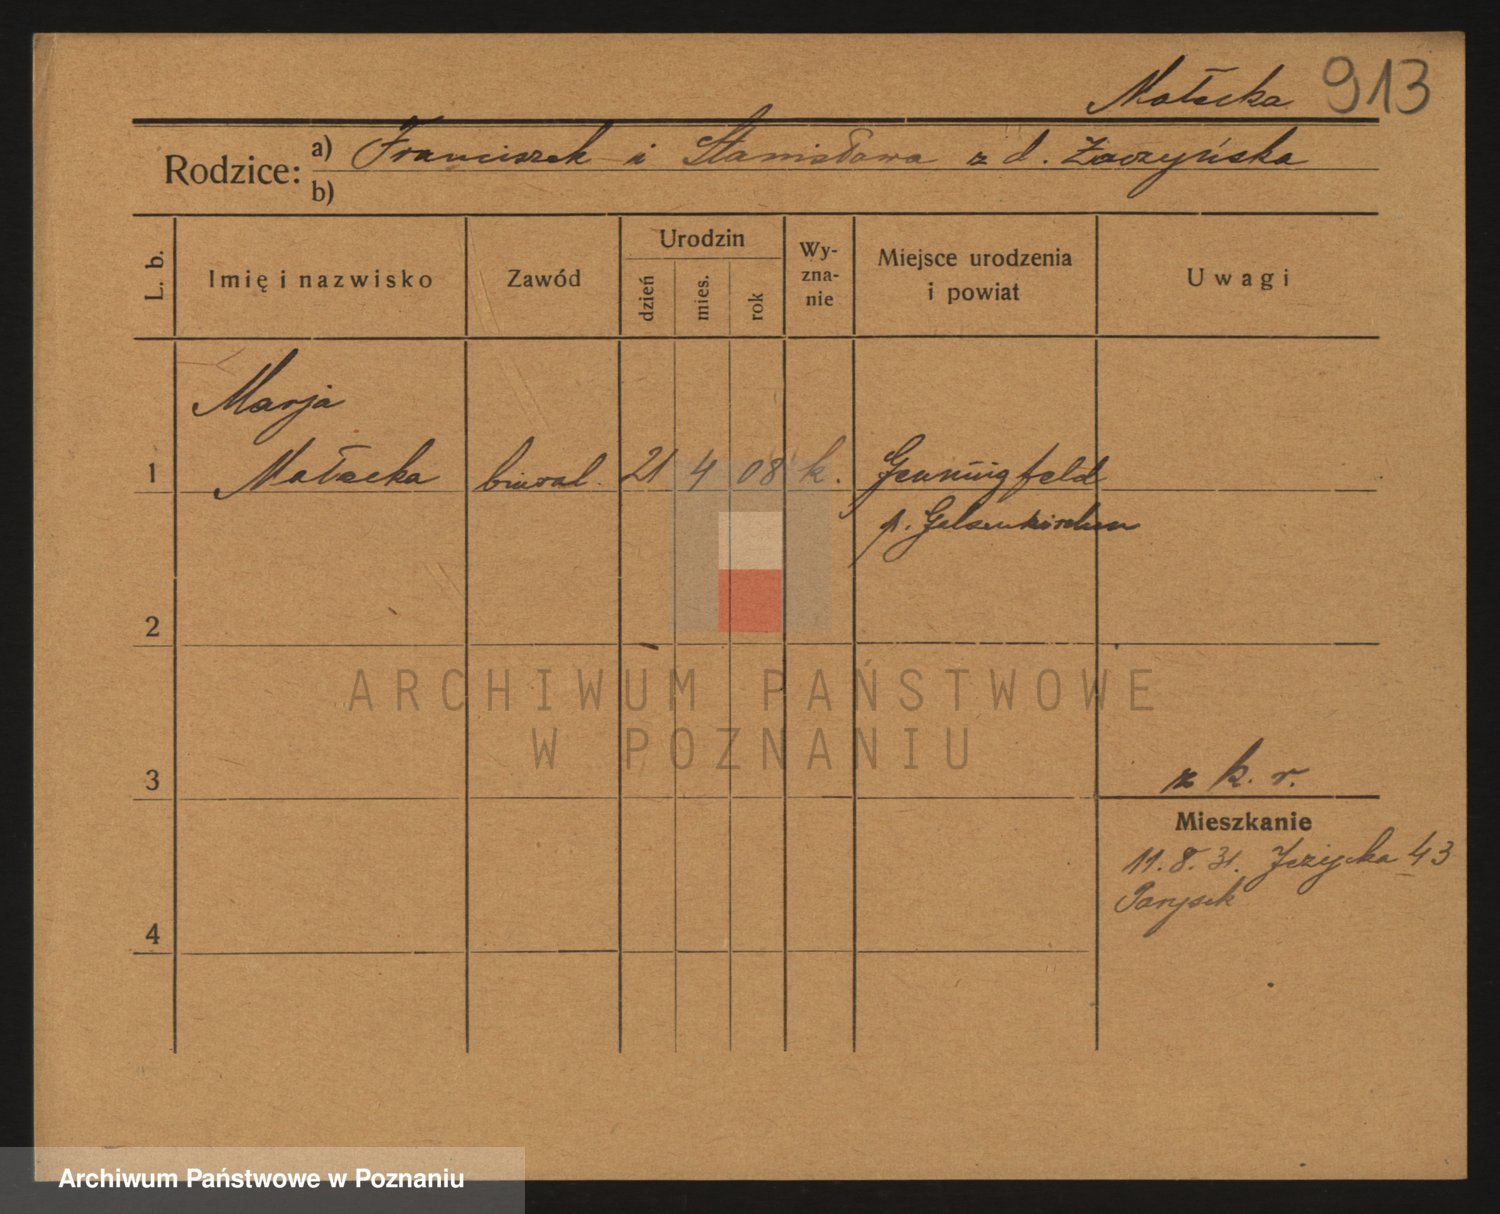 Małecka 913
Rodzice: a) Franciszek i Stanisława z d. Żaczyńska
b)
L. b. Imię i nazwisko Zawód Urodzin dzień mies. rok Wy-zna-nie Miejsce urodzenia i powiat Uwagi
Marja
1 Małecka biural. 21 4 08 k. Gennigfeld
p. Gelsenkirchen
2
ARCHIWUM PAŃSTWOWE
W POZNANIU
3 z k. r.
Mieszkanie
11.8.31. Jeżycka 43
Parysek
4
Archiwum Państwowe w Poznaniu